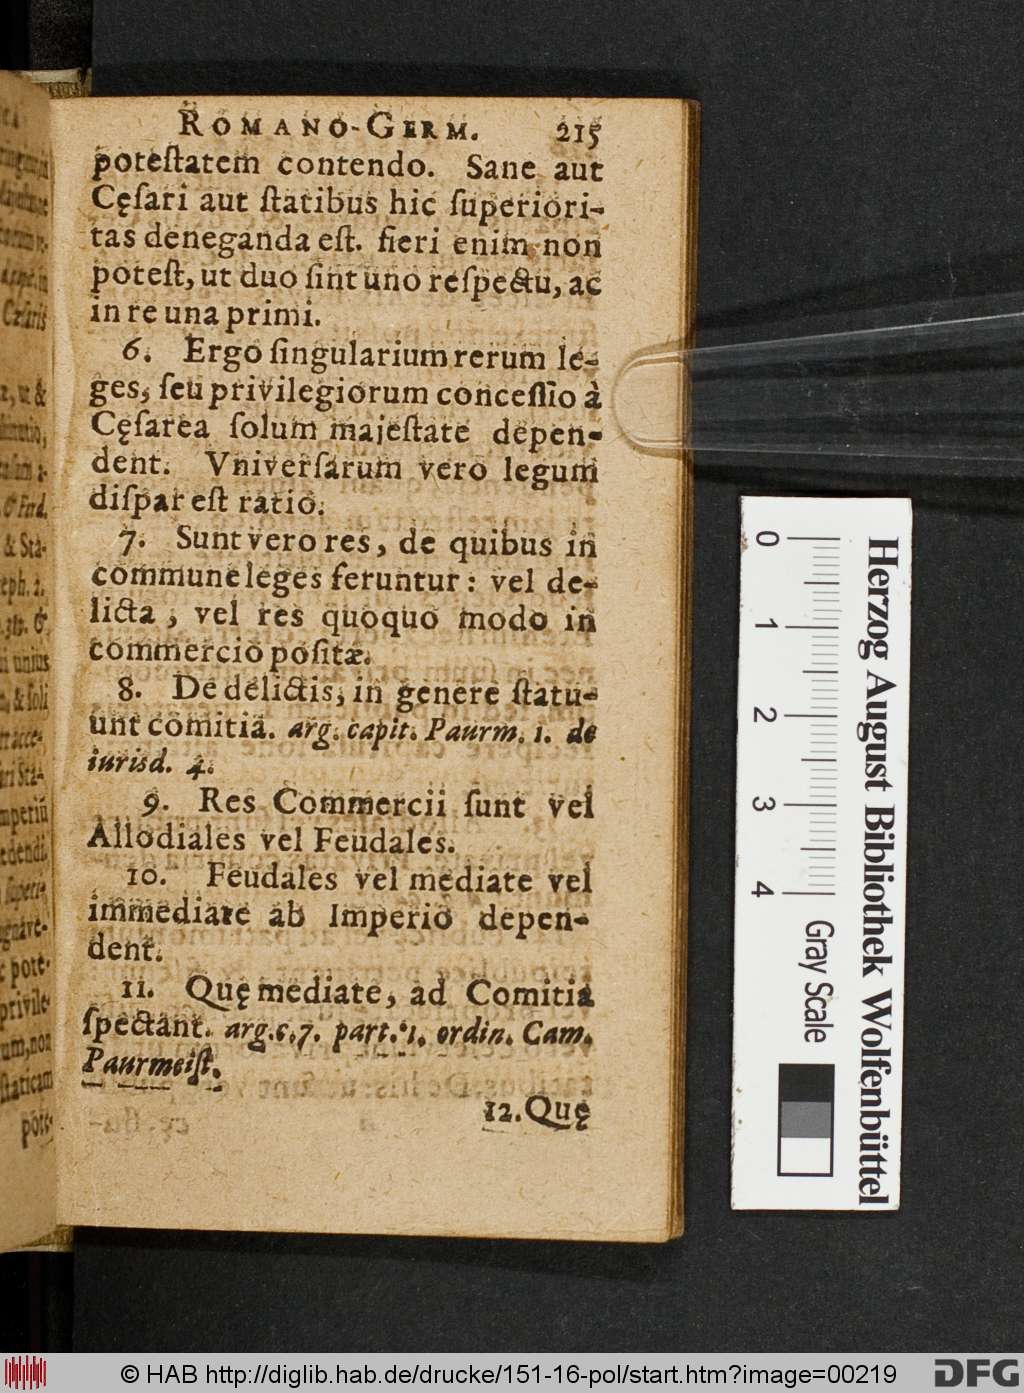 ROMANO-GERM. 215
poteſtatem contendo. Sane aut
Cęſari aut ſtatibus hic ſuperiori-
tas deneganda eſt. fieri enim non
poteſt, ut duo ſint uno reſpectu, ac
in re una primi.
6. Ergo ſingularium rerum le-
ges, ſeu privilegiorum conceſſio à
Cęſarea ſolum majeſtate depen-
dent. Vniverſarum vero legum
diſpar eſt ratio.
7. Sunt vero res, de quibus in
commune leges feruntur: vel de-
licta, vel res quoquo modo in
commercio poſitæ.
8. De delictis, in genere ſtatu-
unt comitia. arg. capit. Paurm. 1. de
iurisd. 4.
9. Res Commercii ſunt vel
Allodiales vel Feudales.
10. Feudales vel mediate vel
immediate ab Imperio depen-
dent.
11. Quę mediate, ad Comitia
ſpectant. arg. c. 7. part. 1. ordin. Cam.
Paurmeiſt.
12. Quę
& Ferd.
& Sta-
eph. 2.
unius
& ſoli
privile-
um, non
ſtaticam
pote-
0 1 2 3 4
Gray Scale
Herzog August Bibliothek Wolfenbüttel
© HAB http://diglib.hab.de/drucke/151-16-pol/start.htm?image=00219
DFG